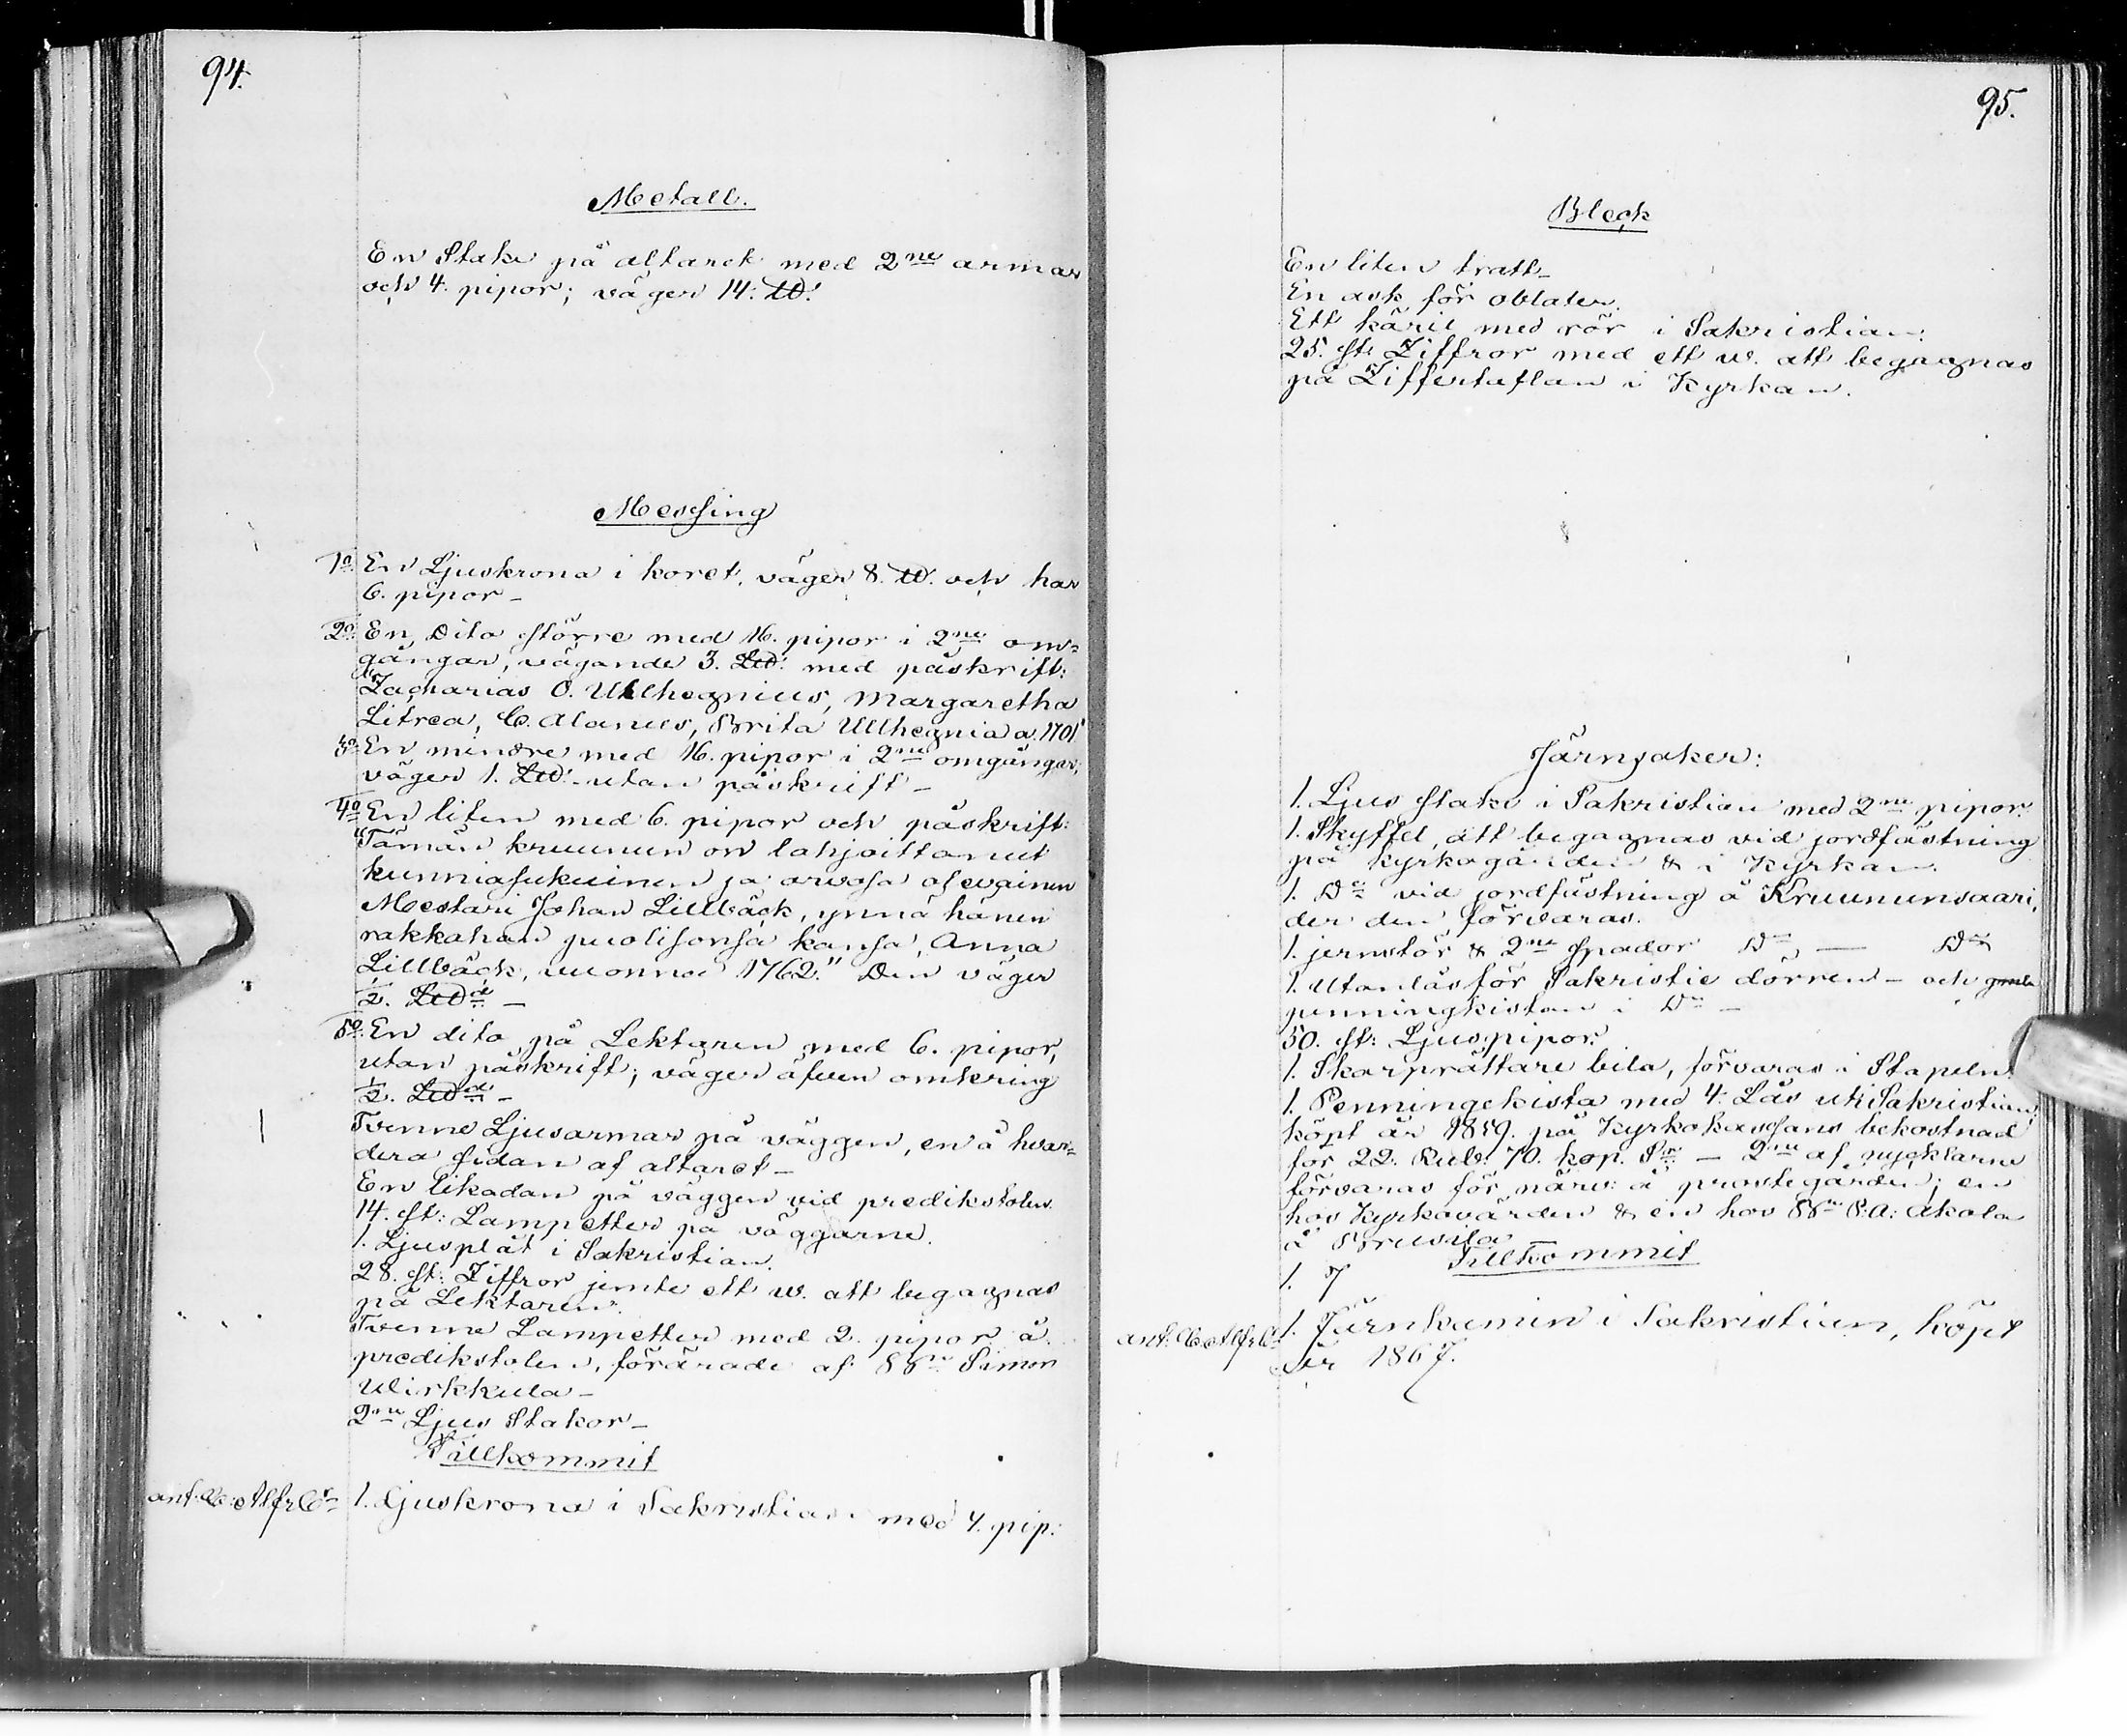 94.
Metall.
En Stake på altaret med 2ne armar
och 4. pipor; väger 14. ℔.
Messing
1o. En Ljuskrona i koret, väger 8. ℔. och har
6. pipor –
2o. En Dito större med 16. pipor i 2ne om=
gångar, vägande 3. L℔. med påskrift:
Zacharias O. Ullhegnius, Margaretha
Litrea, C. Alanus, Brita Ullhegnia a. 1701
3o. En mindre med 16. pipor i 2ne omgångar,
väger 1. L℔. utan påskrift –
4o. En liten med 6. pipor och påskrift:
"Tämän kruunun on lahjoittanut
kunniasukuinen ja arvosa ofevainen
Mestari Johan Lillbäck, ynnä hänen
rakkahan puolisonsa kansa, Anna
Lillbäck, vuonna 1762." Den väger
1/2. L℔d –
5o. En dito på Lektaren med 6. pipor,
utan påskrift; väger äfven omkring
1/2. L℔d –
Tvenne Ljusarmar på väggen, en å hvar=
dera sidan af altaret –
En likadan på väggen vid predikstolen.
14. st: Lampetter på väggarne.
1. Ljusplåt i Sakristian.
28. st: Ziffror jemte ett w. att begagnas
på Lektaren.
Tvenne Lampetter med 2. pipor å
predikstolen, förärade af Bbn Simon
Wirkkula –
2ne Ljus Stakar –
Tillkommit
ant. C: Alfr. Cn 1. Ljuskrona i Sakristian med 4. pip:
95.
Bleck
En liten tratt –
En ask för oblater.
Ett käril med rör i Sakristian.
25. st. Ziffror med ett w. att begagnas
på Ziffertaflan i Kyrkan.
Järnsaker:
1. Ljus stake i Sakristian med 2ne pipor.
1. Skyffel, att begagnas vid jordfästning
på kyrkogården & i Kyrkan.
1. Do vid jordfästning å Kruununsaari,
der den förvaras.
1. jernstör & 2ne spador Do — Do
1. Utanlås för Sakristie dörren – och gmla
penningkistan i Do –
50. st: Ljuspipor.
1. Skarprättare bila, förvaras i Stapeln.
1. Penningekista med 4. Lås uti Sakristian,
köpt år 1859. på Kyrkokassans bekostnad
för 22. Rub. 70. kop. Sr. — 2ne af nycklarne
förvaras för närv: å prostegården; en
hos Kyrkovärden & en hos Bbn P. A: Akola
å Brusila –
Tillkommit
1. 7
ant. C: Alfr. Cn 1. Järnkamin i Sakristian, köpt
år 1867.